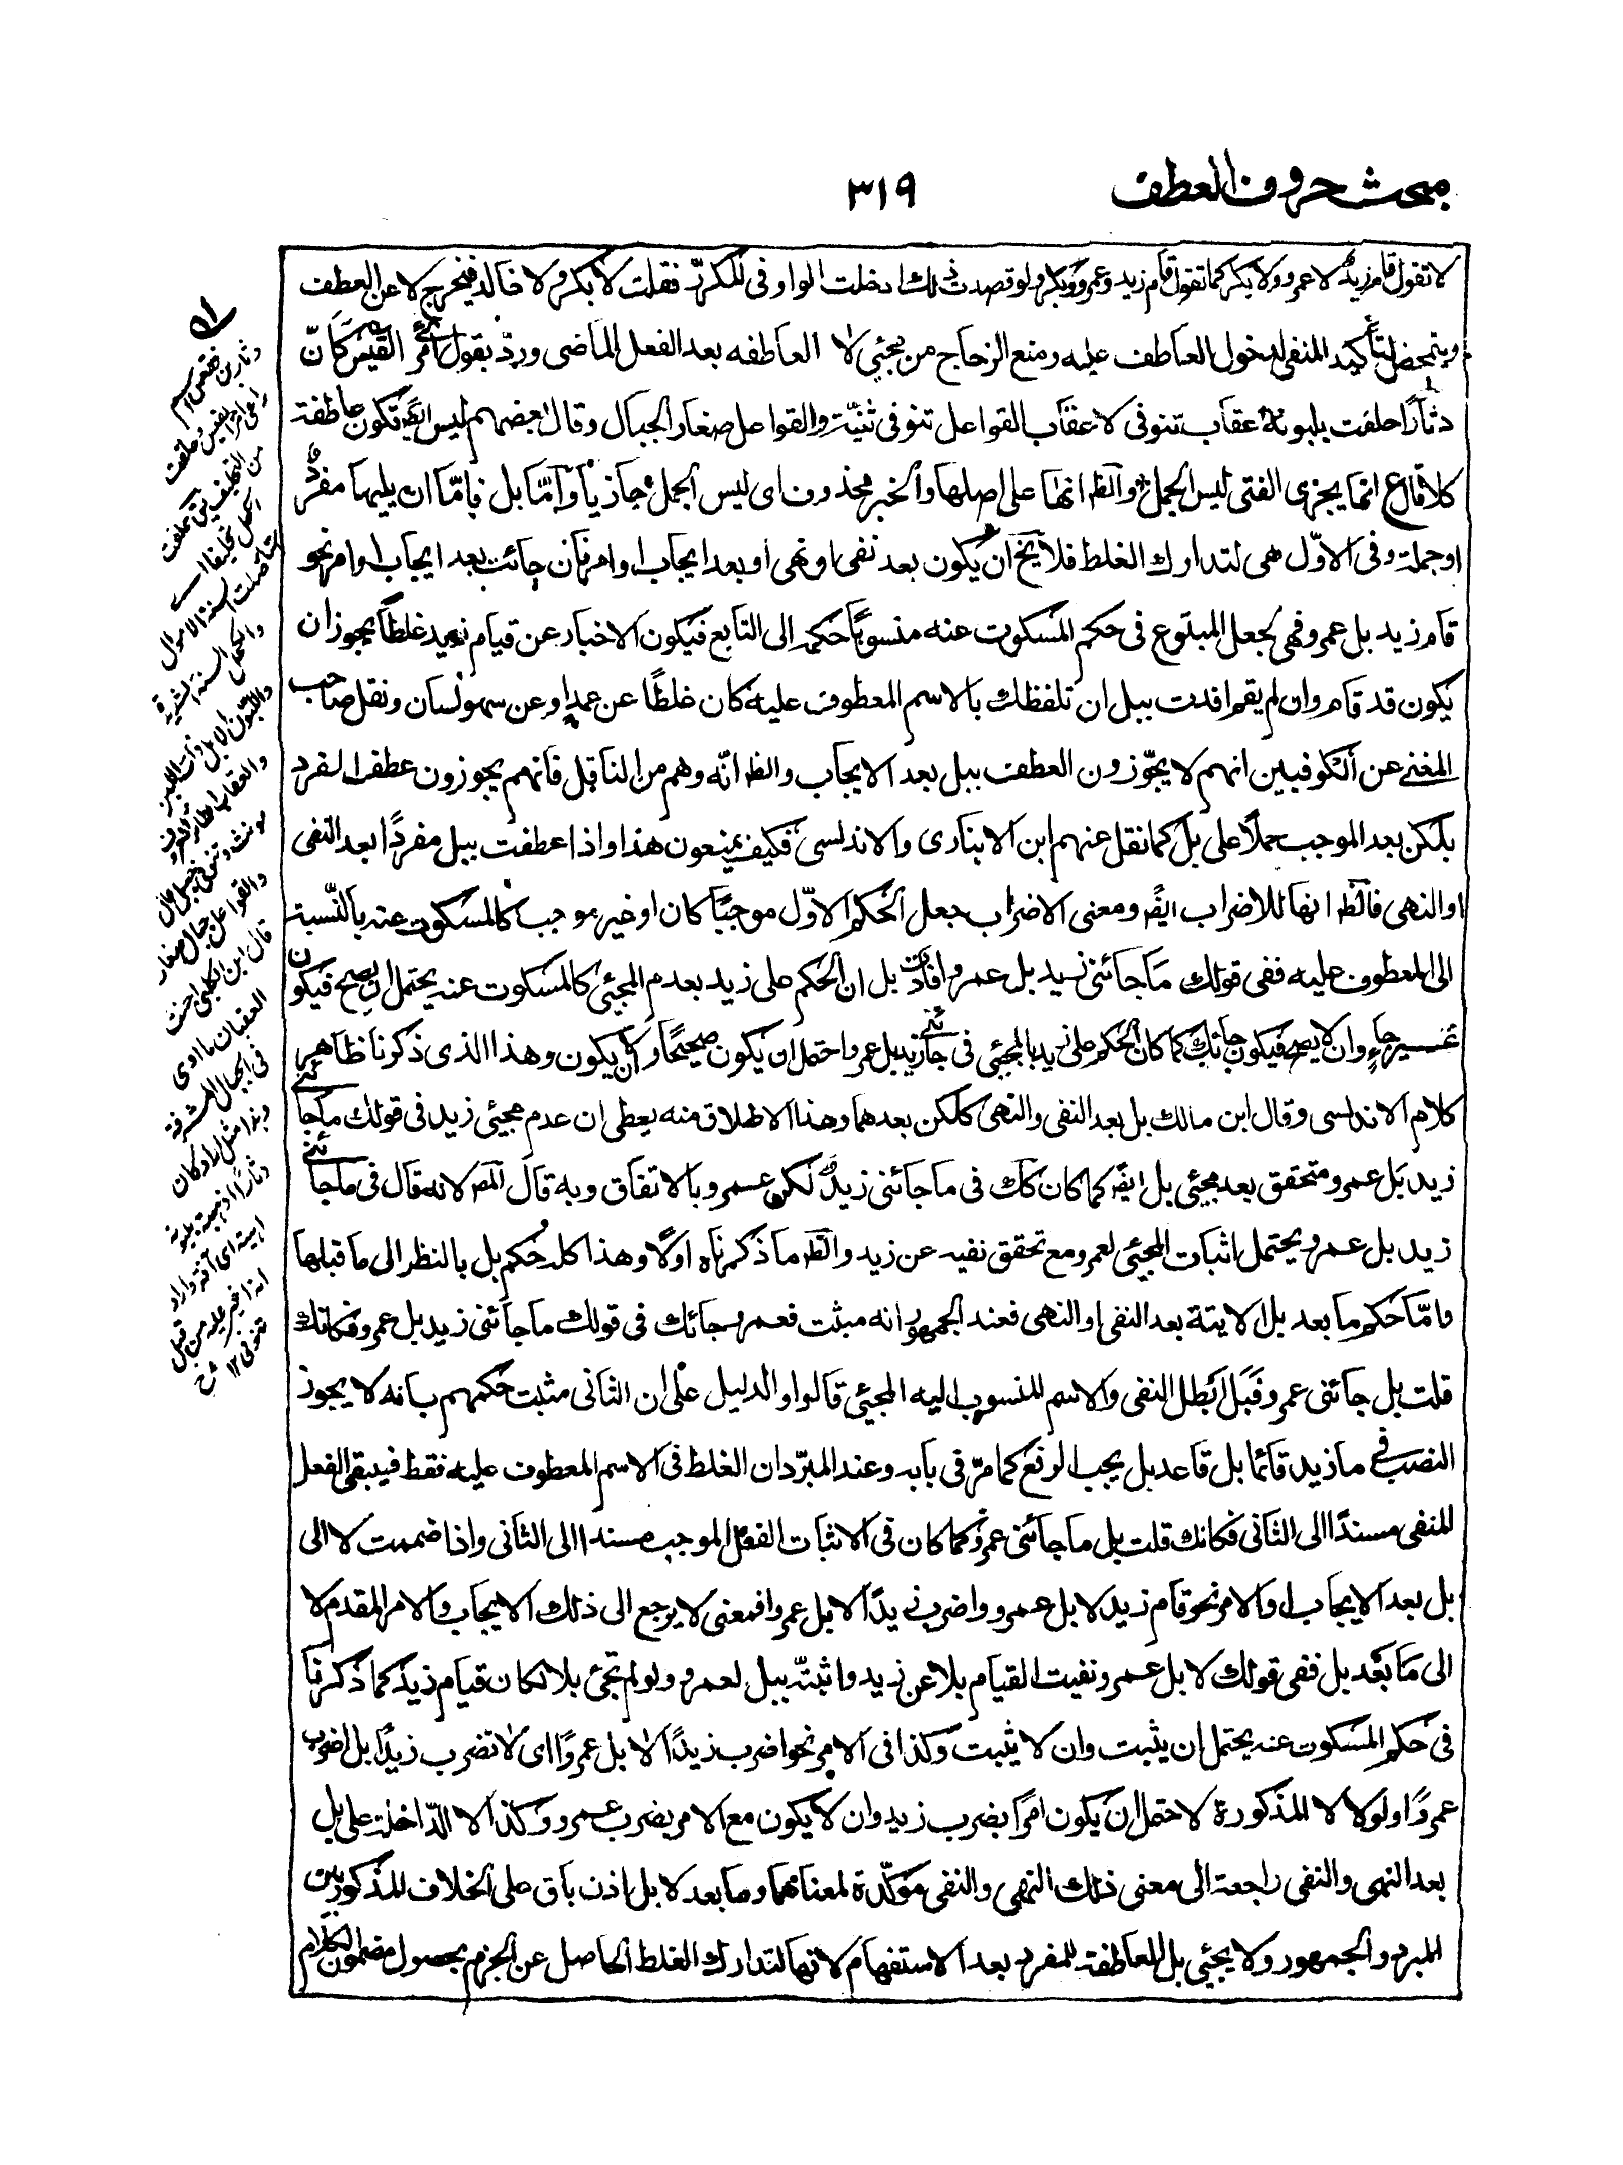 مبحث حروف العطف
٣١٩
لا تقول قام زيد لا عمرو ولا بكر كما تقول قام زيد وعمرو وبكر ولو قصدت ذلك ادخلت الواو فى المكرّر فقلت لا بكر ولا خالد فيخرج لا عن العطف
ويتمحض لتأكيد المنفى لدخول العاطف عليه ومنع الزجاج من مجيئ لا العاطفه بعد الفعل الماضى وردّ بقول امرء القيس كَاَنّ
دثارًا حلقت بلبونهٖ عقاب تنوفى لا عقاب القواعل تنوفى ثنيّة والقواعل صغار الجبال وقال بعضهم ليس ايضًا تكون عاطفة
كلا قال ع انما يجزى الفتى ليس الجمل والظ انها على اصلها والخبر محذوف اى ليس الجمل جازيًا وامّا بل فامّا ان يليها مفرد
او جملة وفى الاوّل هى لتدارك الغلط فلا يخ ان يكون بعد نفى او نهى او بعد ايجاب او امر فان جائت بعد ايجاب او امر نحو
قام زيد بل عمرو فهى لجعل المبتوع فى حكم المسكوت عنه منسوبًا حكمه الى التابع فيكون الاخبار عن قيام زيد غلطًا يجوز ان
يكون قد قام وان لم يقم افدت ببل ان تلفظك بالاسم المعطوف عليه كان غلطًا عن عمد او عن سهو لسان ونقل صاحب
المغنى عن الكوفيين انهم لا يجوّزون العطف ببل بعد الايجاب والظ انّه وهم من الناقل فانهم يجوزون عطف المفرد
بلكن بعد الموجب حملًا على بل كما نقل عنهم ابن الانبارى والاندلسى فكيف يمنعون هذا واذا عطفت ببل مفردًا بعد النفى
او النهى فالظ انها للاضراب ايضًا ومعنى الاضراب جعل الحكم الاوّل موجبًا كان او غير موجب كالمسكوت عنه بالنّسبة
الى المعطوف عليه ففى قولك ما جائنى زيد بل عمرو افادت بل ان الحكم على زيد بعدم المجيئ كالمسكوت عنه يحتمل ان يصح فيكون
غير جاءٍ وان لا يصح فيكون جائك كما كان الحكم على زيد بالمجيئ فى جائنى زيد بل عمرو احتمل ان يكون صحيحًا وان لا يكون وهذا الذى ذكرنا ظاهر
كلام الاندلسى وقال ابن مالك بل بعد النفى والنهى كلكن بعدهما وهذا الاطلاق منه يعطى ان عدم مجيئ زيد فى قولك ما جائنى
زيد بل عمرو متحقق بعد مجيئ بل ايضًا كما كان كك فى ما جائنى زيد لكن عمرو بالاتفاق وبه قال المص لانه قال فى ما جائنى
زيد بل عمرو يحتمل اثبات المجيئ لعمرو مع تحقق نفيه عن زيد والظ ما ذكرناه اولًا وهذا كله حكم بل بالنظر الى ما قبلها
وامّا حكم ما بعد بل الاتية بعد النفى او النهى فعند الجمهور انه مثبت فعمرو جائك فى قولك ما جائنى زيد بل عمرو فكانك
قلت بل جائنى عمرو فبل ابطل النفى والاسم المنسوب اليه المجيئ قالوا والدليل على ان الثانى مثبت حكمهم بانه لا يجوز
النصب فى ما زيد قائما بل قاعد بل يجب الرفع كما مرّ فى بابه وعند المبرّد ان الغلط فى الاسم المعطوف عليه فقط فيبقى الفعل
المنفى مسندًا الى الثانى فكانك قلت بل ما جائنى عمرو كما كان فى الاثبات الفعل الموجب مسندا الى الثانى واذا ضممت لا الى
بل بعد الايجاب او الامر نحو قام زيد لا بل عمرو واضرب زيدًا لا بل عمروا فمعنى لا يرجع الى ذلك الايجاب والامر المقدم لا
الى ما بعد بل ففى قولك لا بل عمرو نفيت القيام بلا عن زيد واثبتّه ببل لعمرو ولو لم تجئ بلا لكان قيام زيد كما ذكرنا
فى حكم المسكوت عنه يحتمل ان يثبت وان لا يثبت وكذا فى الامر نحو اضرب زيدًا لا بل عمروًا اى لا تضرب زيدًا بل اضرب
عمروًا ولولا لا المذكورة لاحتمل ان يكون امرًا بضرب زيد وان لا يكون مع الامر بضرب عمرو وكذا لا الدّاخلة على بل
بعد النهى والنفى راجعة الى معنى ذلك النهى والنفى مؤكّدة لمعناهما وما بعد لا بل اذن باق على الخلاف المذكور بين
المبرد والجمهور ولا يجيئ بل العاطفة للمفرد بعد الاستفهام لانها لتدارك الغلط الحاصل عن الجزم بحصول مضمون الكلام
والقواعل جبال صغار
قال ابن الكلبى اخبث
العقبان ما اوى
فى الجبال المشرفة
وهذا مثل اراد كان
دثارًا ذهبت بلبونه